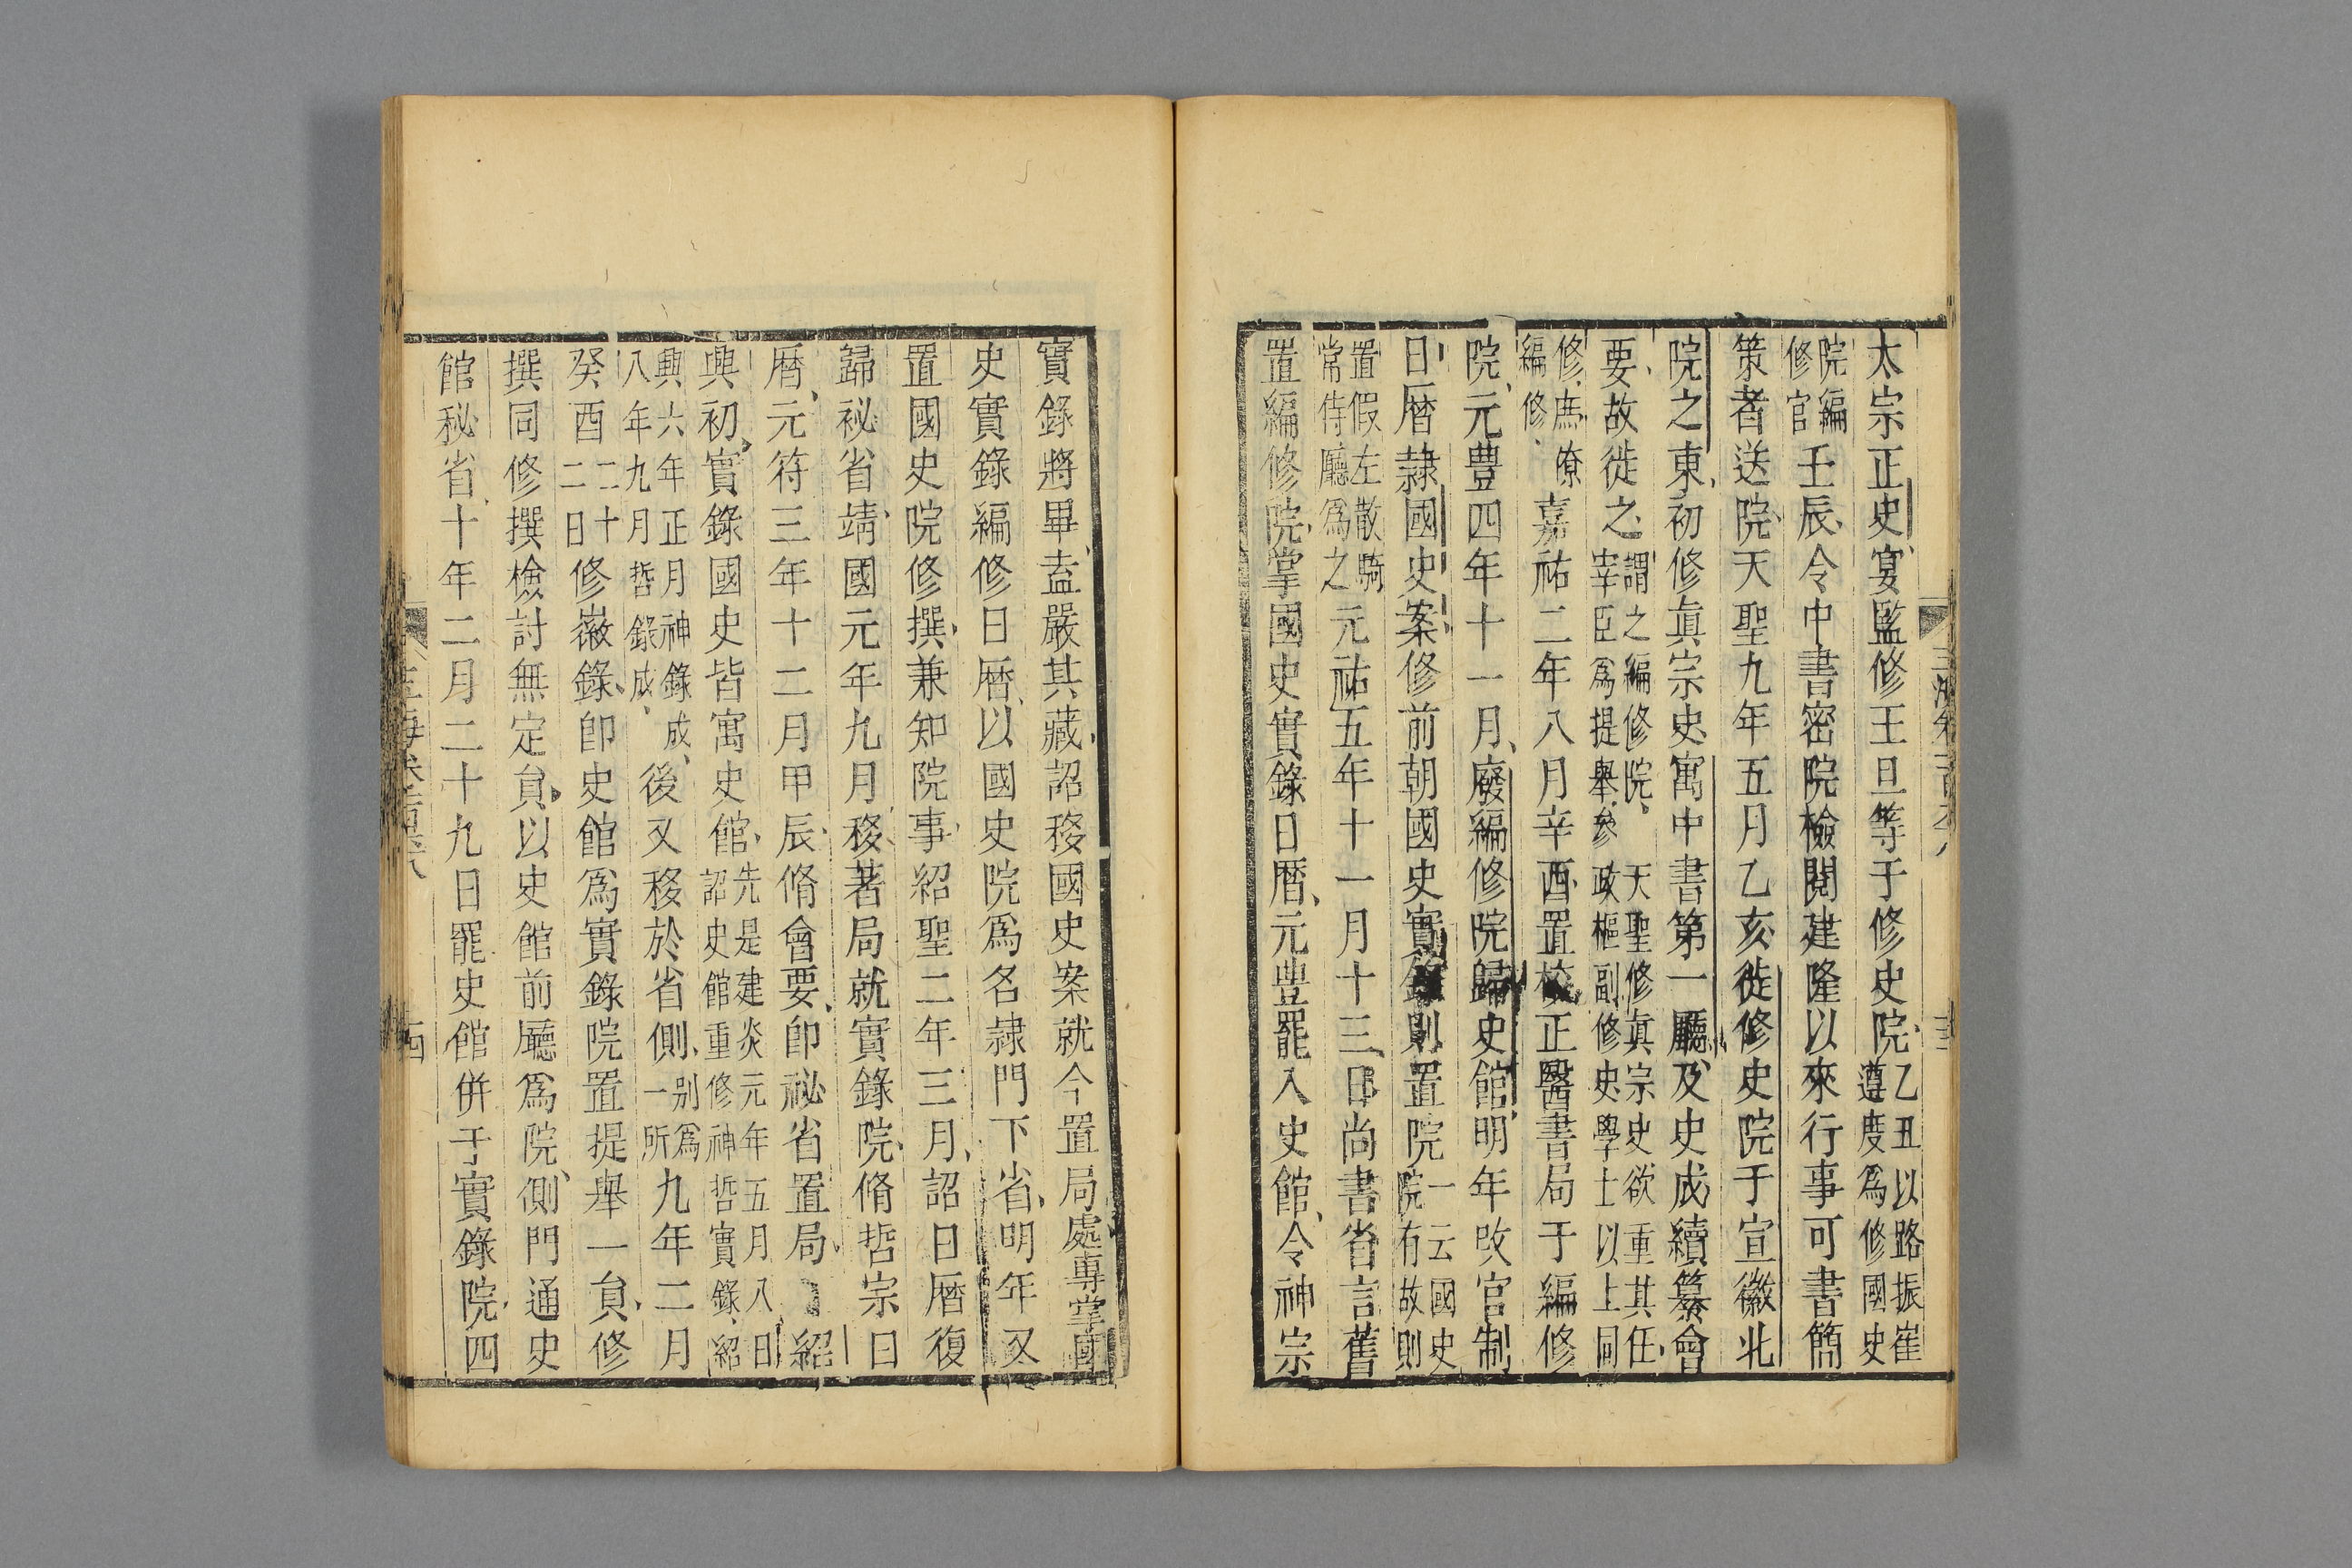 太宗正史宴監修王旦等于修史院乙丑以路振崔遵度爲修國史
院編修官壬辰令中書密院檢閱建隆以來行事可書簡
策者送院天聖九年五月乙亥徙修史院于宣徽北
院之東初修眞宗史寓中書第一廳及史成續纂會
要故徙之謂之編修院天聖修眞宗史欲重其任宰臣爲提舉參政樞副修史學士以上同
修庶僚編修嘉祐二年八月辛酉置校正醫書局于編修
院元豐四年十一月廢編修院歸史館明年改官制
日曆隷國史案修前朝國史實錄則置院一云國史院有故則
置假左散騎常侍廳爲之元祐五年十一月十三日尚書省言舊
置編修院掌國史實錄日曆元豊罷入史館令神宗
實錄將畢盍嚴其藏詔移國史案就今置局處專掌國
史實錄編修日曆以國史院爲名隷門下省明年又
置國史院修撰兼知院事紹聖二年三月詔日曆復
歸祕省靖國元年九月移著局就實錄院脩哲宗日
曆元符三年十二月甲辰脩會要卽祕省置局紹
興初實錄國史皆寓史館先是建炎元年五月八日詔史館重修神哲實錄紹
興六年正月神錄成八年九月哲錄成後又移於省側別爲一所九年二月
癸酉二十二日修徽錄卽史館爲實錄院置提舉一員修
撰同修撰檢討無定員以史館前廳爲院側門通史
館秘省十年二月二十九日罷史館併于實錄院四